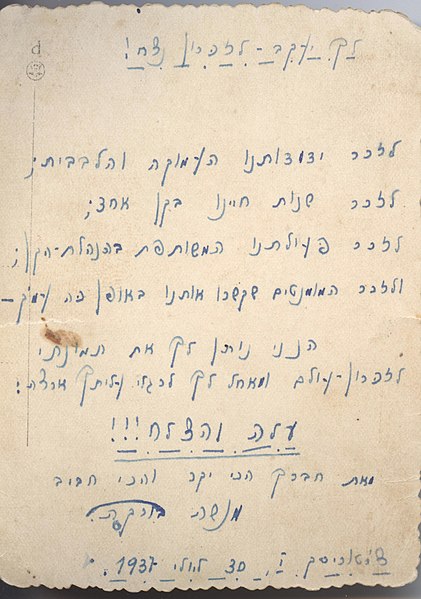 לך יעקב - לזכרון נצח!
לזכר ידידותנו העמוקה והלבבית;
לזכר שנות חיינו בקן אחד;
לזכר פעולתנו המשותפת בהנהלת-הקן;
ולזכר המומנטים שקשרו אותנו באופן כה עמק –
הנני נותן לך את תמונתי
לזכרון-עולם ומאחל לך לרגלי עליתך ארצה:
עלה והצלח!!!
מאת חברך הכי יקר והכי חביב
מנשה
I, 30 לולי 1937.